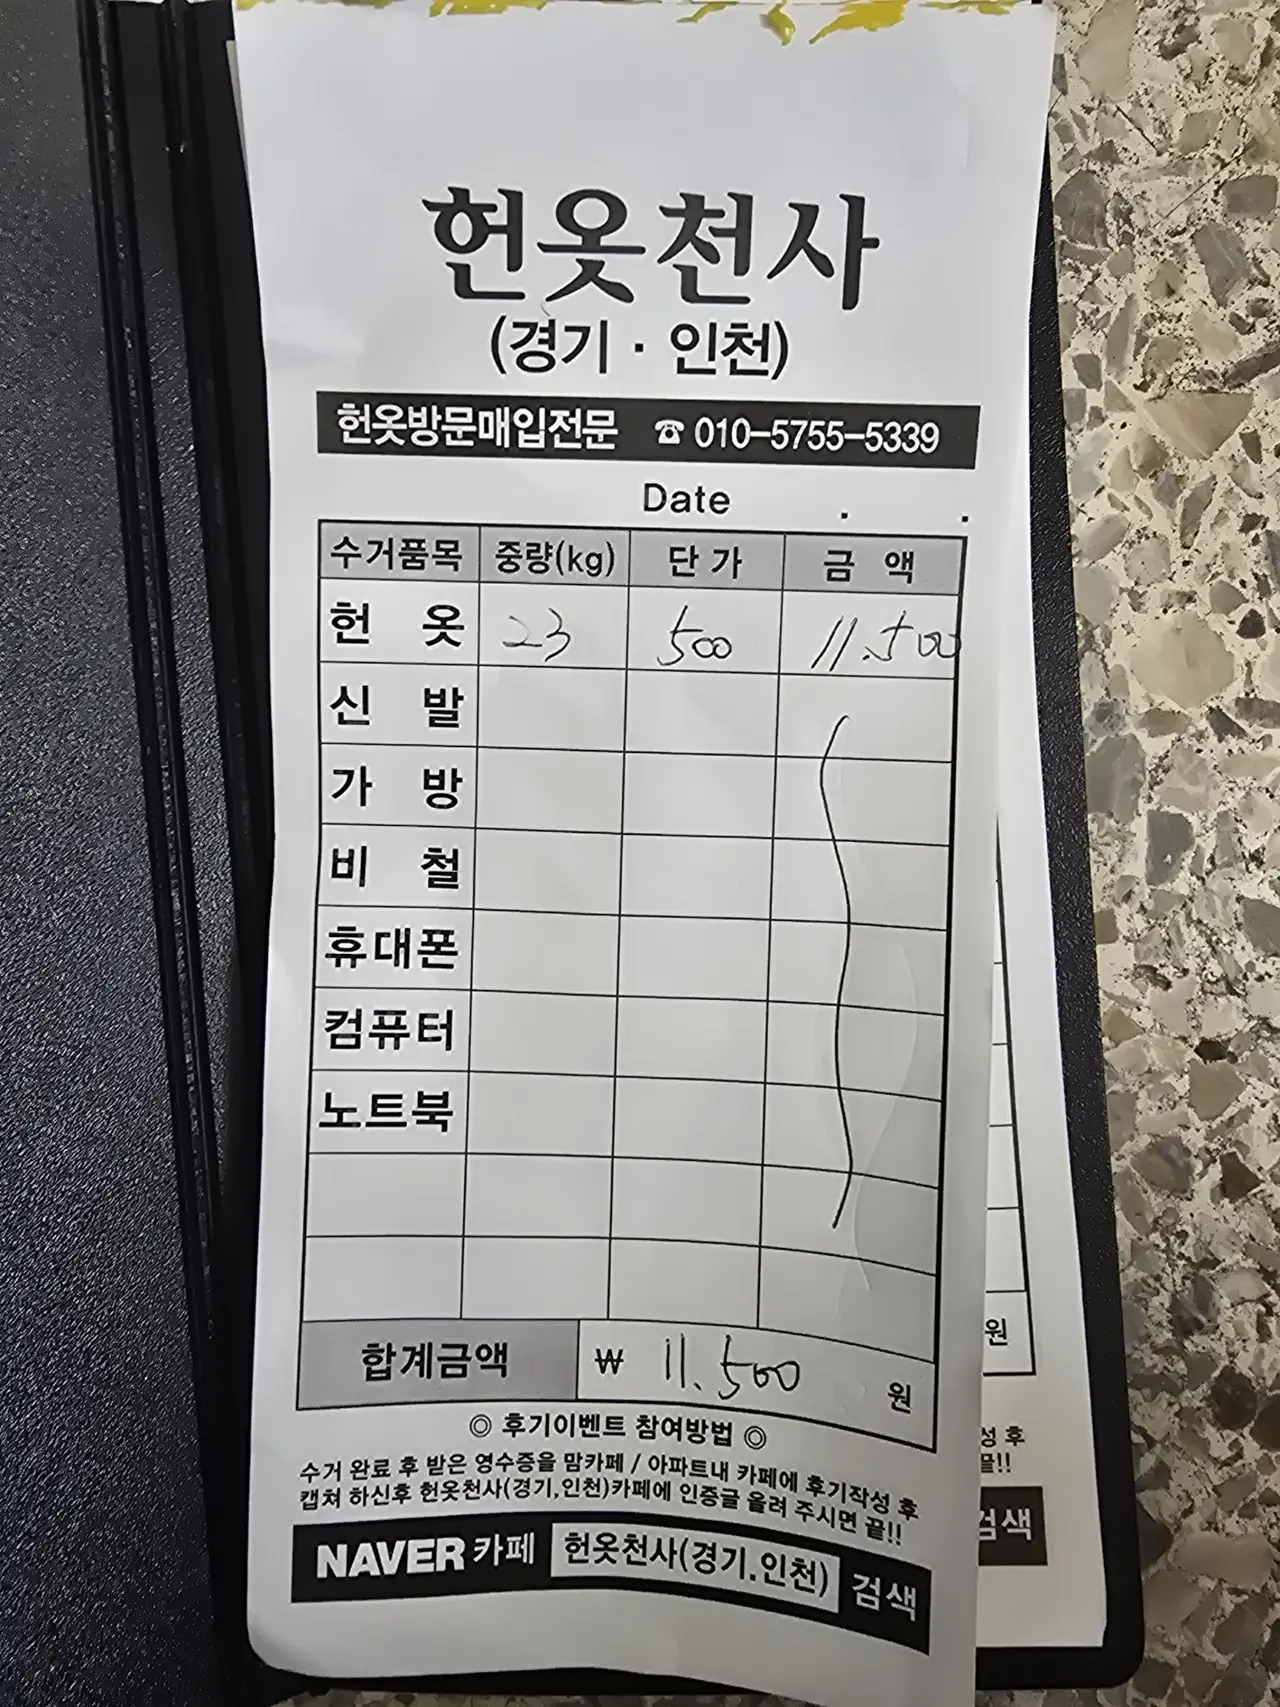 헌옷천사
(경기 · 인천)
헌옷방문매입전문 ☎ 010-5755-5339
Date . .
수거품목 중량(kg) 단가 금액
헌 옷 23 500 11.500
신 발
가 방
비 철
휴대폰
컴퓨터
노트북
합계금액 ₩ 11.500 원
◎ 후기이벤트 참여방법 ◎
수거 완료 후 받은 영수증을 맘카페 / 아파트내 카페에 후기작성 후
캡쳐 하신후 헌옷천사(경기,인천)카페에 인증글 올려 주시면 끝!!
NAVER 카페 헌옷천사(경기.인천) 검색
원
성 후
끝!!
검색